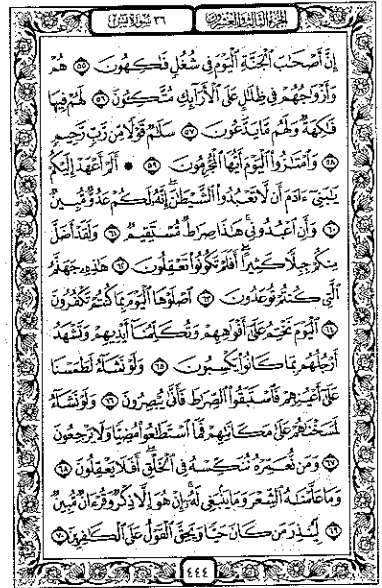 الجزء الثالث والعشرون
٣٦ سورة يس
إِنَّ أَصْحَٰبَ ٱلْجَنَّةِ ٱلْيَوْمَ فِى شُغُلٍ فَٰكِهُونَ ٥٥ هُمْ
وَأَزْوَٰجُهُمْ فِى ظِلَٰلٍ عَلَى ٱلْأَرَآئِكِ مُتَّكِـُٔونَ ٥٦ لَهُمْ فِيهَا
فَٰكِهَةٌ وَلَهُم مَّا يَدَّعُونَ ٥٧ سَلَٰمٌ قَوْلًا مِّن رَّبٍّ رَّحِيمٍ
٥٨ وَٱمْتَٰزُوا۟ ٱلْيَوْمَ أَيُّهَا ٱلْمُجْرِمُونَ ٥٩ • أَلَمْ أَعْهَدْ إِلَيْكُمْ
يَٰبَنِىٓ ءَادَمَ أَن لَّا تَعْبُدُوا۟ ٱلشَّيْطَٰنَ إِنَّهُۥ لَكُمْ عَدُوٌّ مُّبِينٌ
٦٠ وَأَنِ ٱعْبُدُونِى هَٰذَا صِرَٰطٌ مُّسْتَقِيمٌ ٦١ وَلَقَدْ أَضَلَّ
مِنكُمْ جِبِلًّا كَثِيرًا أَفَلَمْ تَكُونُوا۟ تَعْقِلُونَ ٦٢ هَٰذِهِۦ جَهَنَّمُ
ٱلَّتِى كُنتُمْ تُوعَدُونَ ٦٣ ٱصْلَوْهَا ٱلْيَوْمَ بِمَا كُنتُمْ تَكْفُرُونَ
٦٤ ٱلْيَوْمَ نَخْتِمُ عَلَىٰٓ أَفْوَٰهِهِمْ وَتُكَلِّمُنَآ أَيْدِيهِمْ وَتَشْهَدُ
أَرْجُلُهُم بِمَا كَانُوا۟ يَكْسِبُونَ ٦٥ وَلَوْ نَشَآءُ لَطَمَسْنَا
عَلَىٰٓ أَعْيُنِهِمْ فَٱسْتَبَقُوا۟ ٱلصِّرَٰطَ فَأَنَّىٰ يُبْصِرُونَ ٦٦ وَلَوْ نَشَآءُ
لَمَسَخْنَٰهُمْ عَلَىٰ مَكَانَتِهِمْ فَمَا ٱسْتَطَٰعُوا۟ مُضِيًّا وَلَا يَرْجِعُونَ
٦٧ وَمَن نُّعَمِّرْهُ نُنَكِّسْهُ فِى ٱلْخَلْقِ أَفَلَا يَعْقِلُونَ ٦٨
وَمَا عَلَّمْنَٰهُ ٱلشِّعْرَ وَمَا يَنۢبَغِى لَهُۥٓ إِنْ هُوَ إِلَّا ذِكْرٌ وَقُرْءَانٌ مُّبِينٌ
٦٩ لِّيُنذِرَ مَن كَانَ حَيًّا وَيَحِقَّ ٱلْقَوْلُ عَلَى ٱلْكَٰفِرِينَ ٧٠
٤٤٤